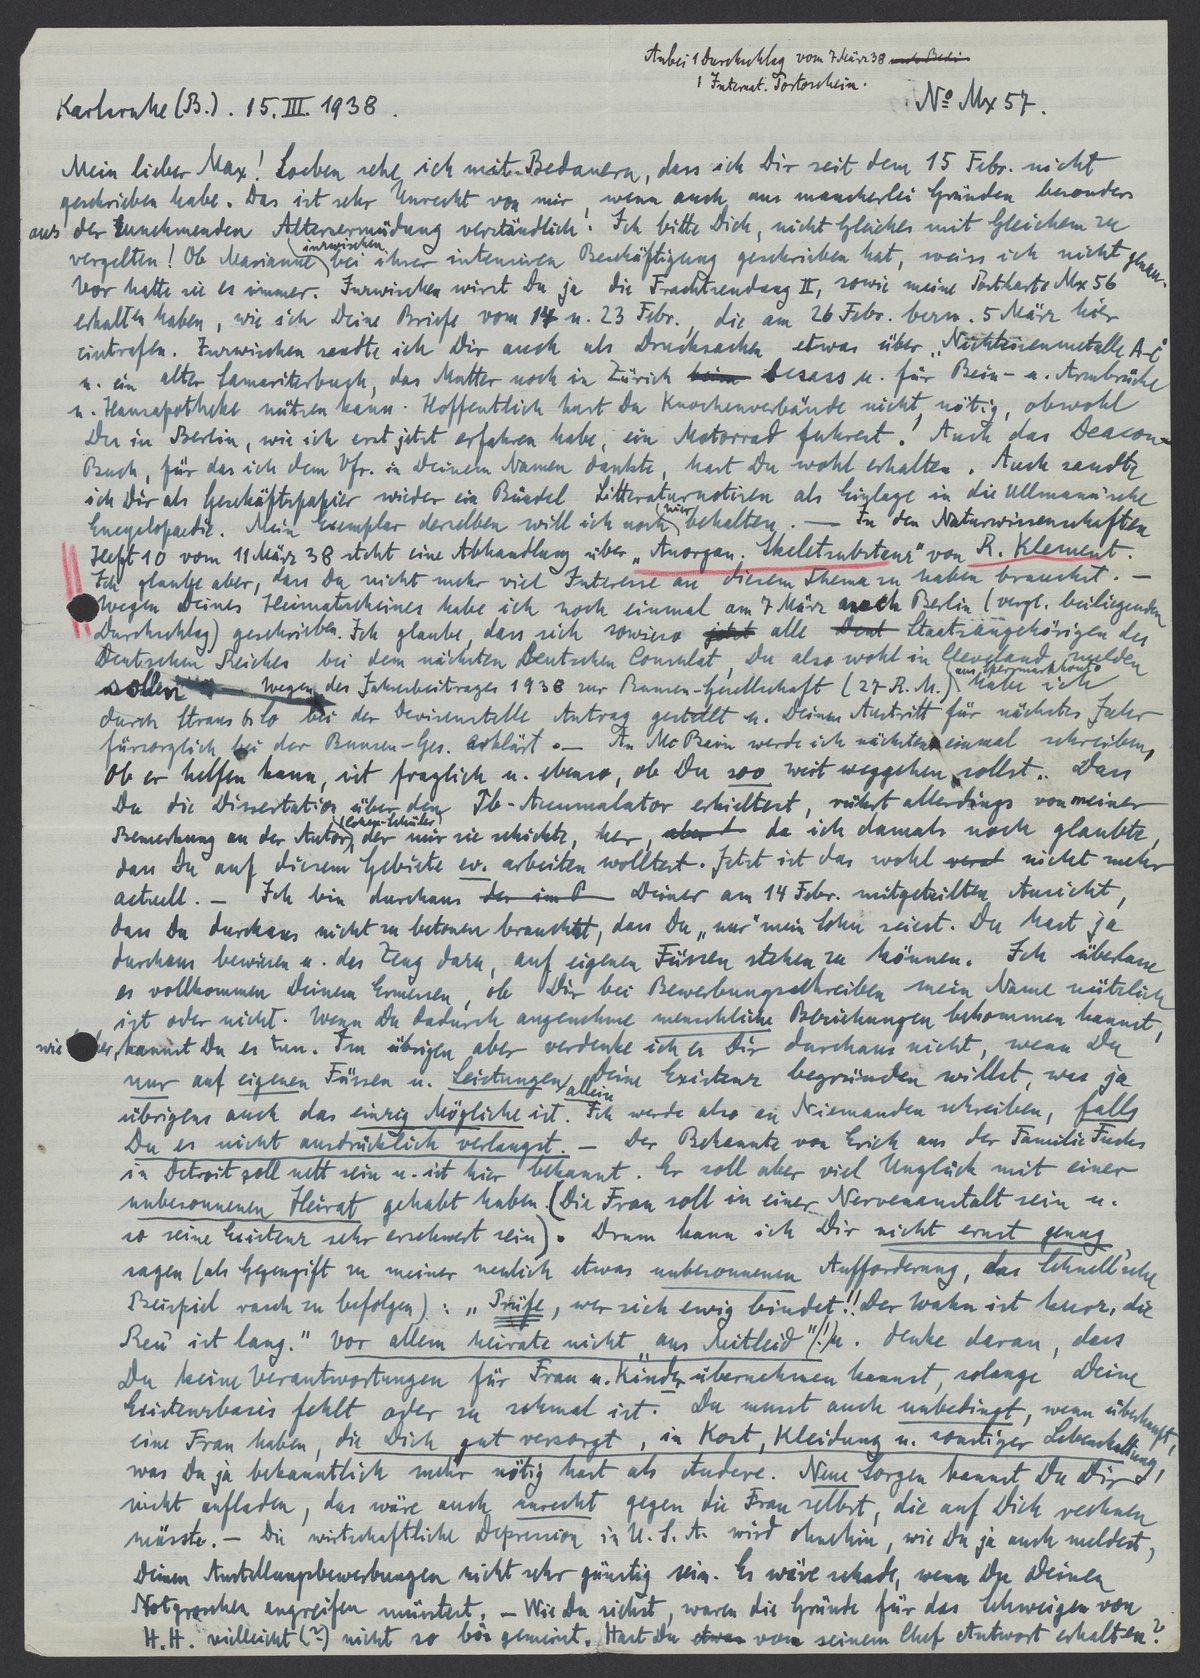 Anbei 1 Durchschlag vom 7 März 38 nach Berlin
1 Internat. Portoschein.
Karlsruhe (B.). 15. III. 1938.
No Mx 57.
Mein lieber Max! Soeben sehe ich mit Bedauern, dass ich Dir seit dem 15 Febr. nicht
geschrieben habe. Das ist sehr Unrecht von mir wenn auch aus mancherlei Gründen besonders
aus der zunehmenden Altersermüdung verständlich! Ich bitte Dich, nicht Gleiches mit Gleichem zu
vergelten! Ob Marianne inzwischen bei ihrer intensiven Beschäftigung geschrieben hat, weiss ich nicht
vor hatte sie es immer. Inzwischen wirst Du ja die Frachtsendung II, sowie meine Postkarte Mx 56
erhalten haben, wie ich Deine Briefe vom 14 u. 23 Febr., die am 26 Febr. bezw. 5 März hier
eintrafen. Inzwischen sandte ich Dir auch als Drucksachen etwas über "Nichteisenmetalle A-C"
u. ein altes Samariterbuch, das Mutter noch in Zürich beim besass u. für Bein- u. Armbrüche
u. Hausapotheke nützen kann. Hoffentlich hast Du Knochenverbände nicht nötig, obwohl
Du in Berlin, wie ich erst jetzt erfahren habe, ein Motorrad fuhrest! Auch das Deacon-
Buch, für das ich dem Vfr. in Deinem Namen dankte, hast Du wohl erhalten. Auch sandte
ich Dir als Geschäftspapier wieder ein Bündel Litteraturnotizen als Einlage in die Ullmann'sche
Encyclopaedie. Mein Exemplar derselben will ich noch hier behalten. — In den Naturwissenschaften
Heft 10 vom 11 März 38 steht eine Abhandlung über "Anorgan. Skeletsubstanz" von R. Klement.
Ich glaube aber, dass Du nicht mehr viel Interesse an diesem Thema zu haben brauchst. —
Wegen Deines Heimatscheines habe ich noch einmal am 7 März nach Berlin (vergl. beiliegenden
Durchschlag) geschrieben. Ich glaube, dass sich sowieso jetzt alle Deut Staatsangehörigen des
Deutschen Reiches bei dem nächsten Deutschen Consulat, Du also wohl in Cleveland melden
sollen Wegen des Jahresbeitrages 1938 zur Bunsen-Gesellschaft (27 R.M.) aus Sperrmarkkonto habe ich
durch Straus & Co bei der Devisenstelle Antrag gestellt u. Deinen Austritt für nächstes Jahr
fürsorglich bei der Bunsen-Ges. erklärt. — An McBain werde ich nächstens einmal schreiben,
Ob er helfen kann, ist fraglich u. ebenso, ob Du soo weit weggehen sollst. Dass
Du die Dissertation über den Pb-Accumulator erhieltest, rührt allerdings von meiner
Bemerkung an den Autor (Cohen-Schüler) der mir sie schickte, her, aber da ich damals noch glaubte,
dass Du auf diesem Gebiete ev. arbeiten wolltest. Jetzt ist das wohl nicht mehr
actuell. — Ich bin durchaus der im Deiner am 14 Febr. mitgeteilten Ansicht,
dass Du durchaus nicht zu betonen brauchst, dass Du "nur" mein Sohn seiest. Du hast ja
durchaus bewiesen u. das Zeug dazu, auf eigenen Füssen stehen zu können. Ich überlasse
es vollkommen Deinem Ermessen, ob Dir bei Bewerbungsschreiben mein Name nützlich
ist oder nicht. Wenn Du dadurch angenehme menschliche Beziehungen bekommen kannst,
kannst Du es tun. Im übrigen aber verdenke ich es Dir durchaus nicht, wenn Du
nur auf eigenen Füssen u. Leistungen allein Deine Existenz begründen willst, was ja
übrigens auch das einzig Mögliche ist. Ich werde also an Niemanden schreiben, falls
Du es nicht ausdrücklich verlangst. — Der Bekannte von Erich aus der Familie Fuchs
in Detroit soll nett sein u. ist hier bekannt. Er soll aber viel Unglück mit einer
unbesonnenen Heirat gehabt haben. (Die Frau soll in einer Nervenanstalt sein u.
so seine Existenz sehr erschwert sein). Drum kann ich Dir nicht ernst genug
sagen (als Gegengift zu meiner neulich etwas unbesonnenen Aufforderung, das Schnell'sche
Beispiel rasch zu befolgen): "Prüfe, wer sich ewig bindet!! Der Wahn ist kurz, die
Reu' ist lang." Vor allem heirate nicht "aus Mitleid" (!) u. denke daran, dass
Du keine Verantwortungen für Frau u. Kinder übernehmen kannst, solange Deine
Existenzbasis fehlt oder zu schmal ist. Du musst auch unbedingt, wenn überhaupt,
eine Frau haben, die Dich gut versorgt, in Kost, Kleidung u. sonstiger Lebenshaltung,
was Du ja bekanntlich mehr nötig hast als Andere. Neue Sorgen kannst Du Dir
nicht aufladen, das wäre auch unrecht gegen die Frau selbst, die auf Dich rechnen
müsste. — Die wirtschaftliche Depression in U.S.A. wird ohnehin, wie Du ja auch meldest,
Deinen Anstellungsbewerbungen nicht sehr günstig sein. Es wäre schade, wenn Du Deinen
Notgroschen angreifen müsstest. — Wie Du siehst, waren die Gründe für das Schweigen von
H.H. vielleicht (?) nicht so bös gemeint. Hast Du etwas von seinem Chef Antwort erhalten?